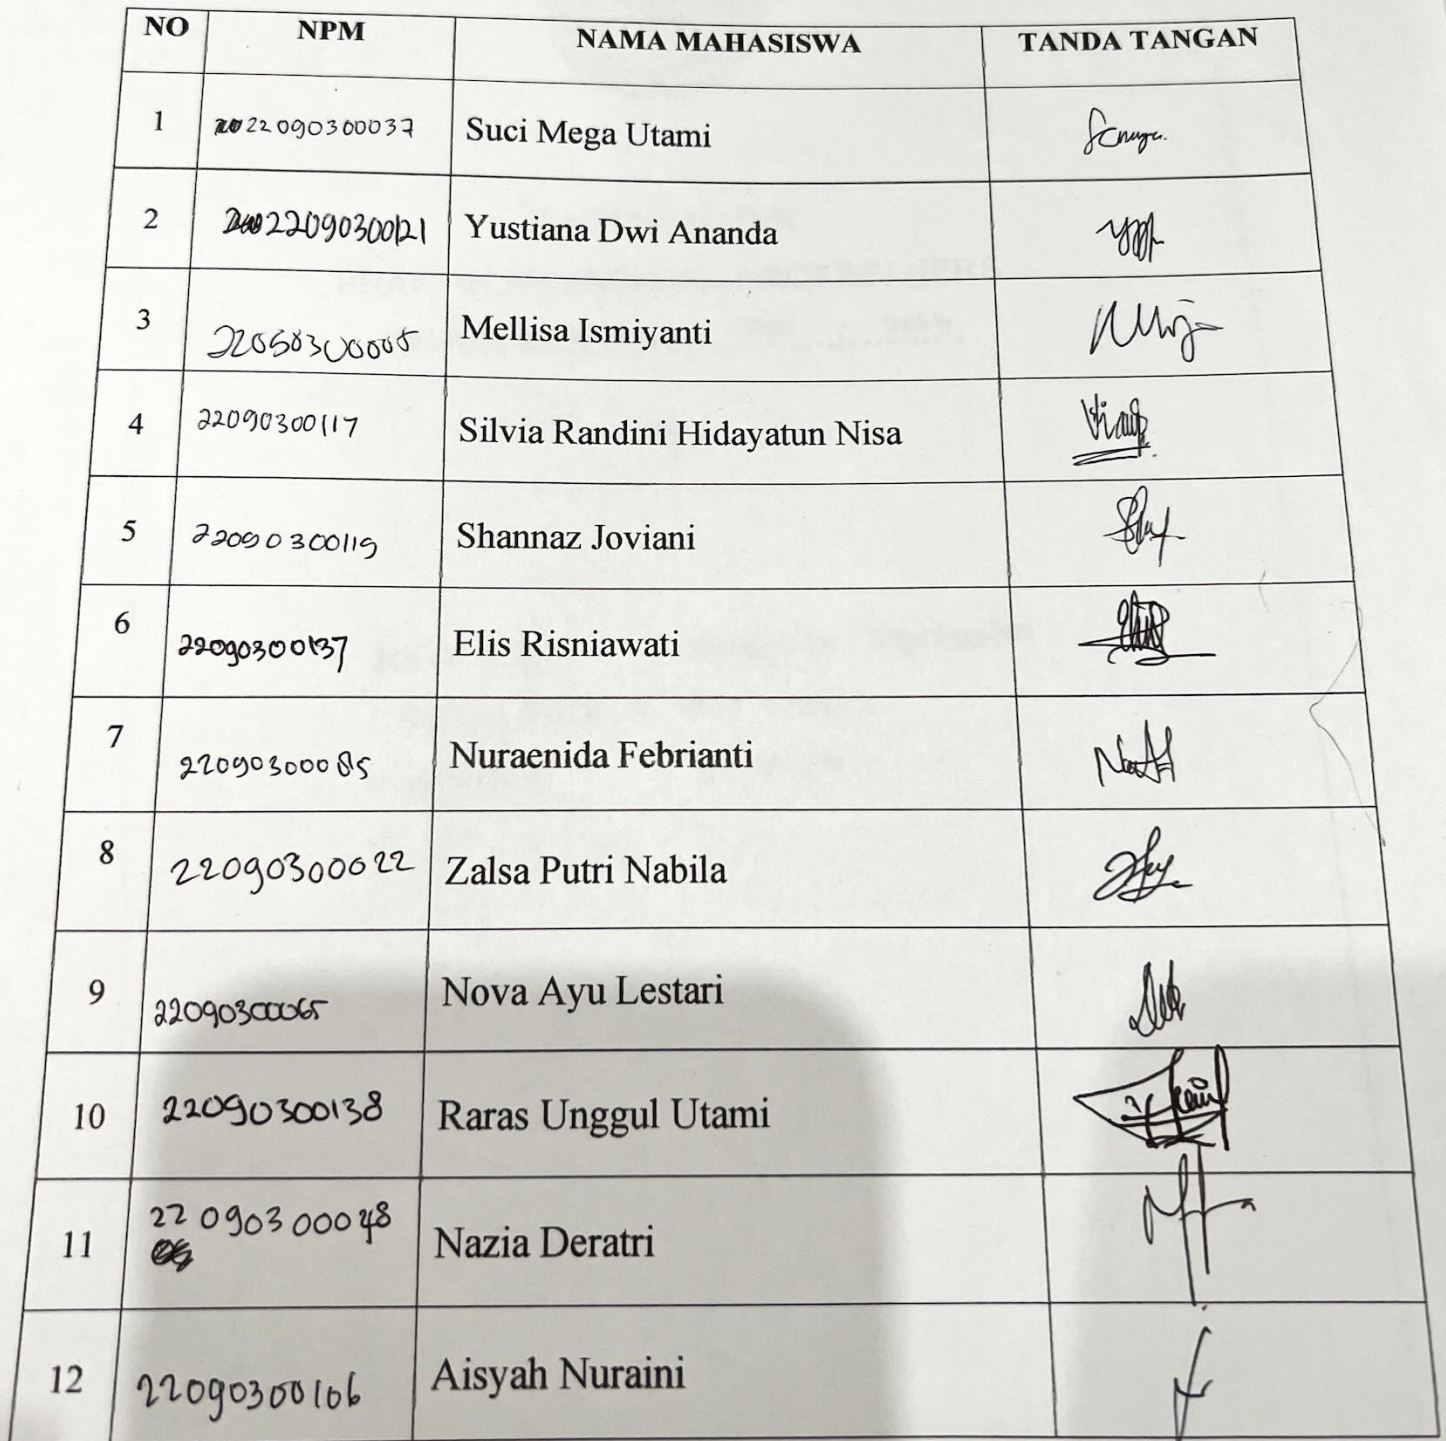 NO NPM NAMA MAHASISWA TANDA TANGAN
1 22090300037 Suci Mega Utami
2 22090300121 Yustiana Dwi Ananda
3 Mellisa Ismiyanti
4 22090300117 Silvia Randini Hidayatun Nisa
5 22090300119 Shannaz Joviani
6 22090300137 Elis Risniawati
7 22090300085 Nuraenida Febrianti
8 22090300022 Zalsa Putri Nabila
9 22090300065 Nova Ayu Lestari
10 22090300138 Raras Unggul Utami
11 22090300048 Nazia Deratri
12 22090300106 Aisyah Nuraini